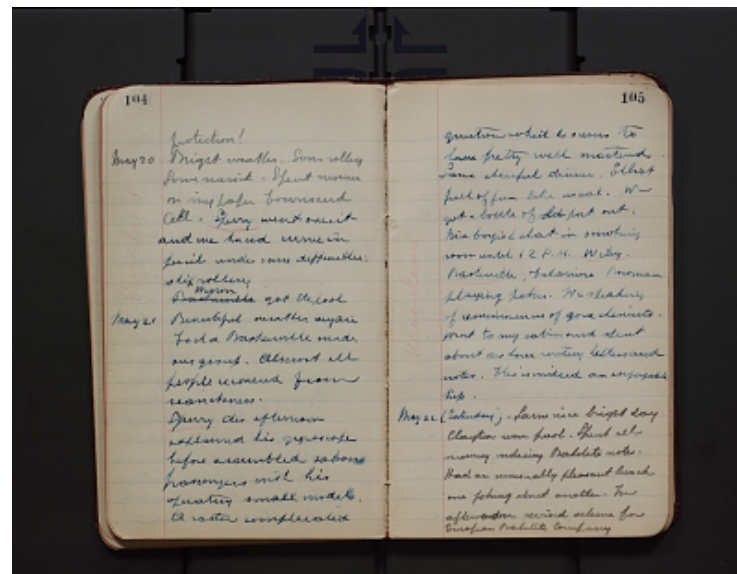 104
protection!
May 20 Bright weather. Some rolling
Spent morning
on my paper Townsend
Cell. Sperry went over it
and we had
in spite under some difficulties:
ship rolling
Myron
Baskerville got
May 21 Beautiful weather again
Baskerville made
our group. Almost all
people recovered from
seasickness.
Sperry this afternoon
explained his gyroscope
before assembled saloon
passengers with his
operating small models.
A rather complicated
105
question which he seems to
have pretty well mastered.
Same cheerful dinner. Elliot
full of fun like usual. We
get a bottle of old port out.
chat in smoking
room until 12 P.M. Wiley
Baskerville,
playing poker. We
of reminiscences of
Went to my cabin and spent
about an hour writing letters and
notes. This is indeed an enjoyable
trip.
May 22 (Saturday). Same nice bright day
won pool. Spent all
morning indexing Bakelite notes.
Had an unusually pleasant lunch
one joking about another. In
afternoon revised scheme for
European Bakelite Company